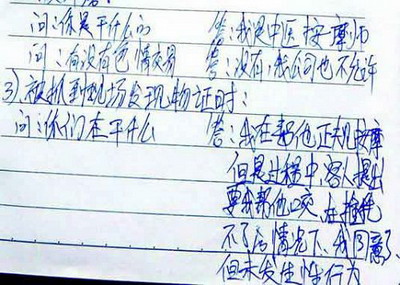 问:你是干什么的 答:我是中医按摩师
问:有没有色情交易 答:没有,我公司也不允许
3)被抓到现场发现物证时:
问:你们在干什么 答:我在帮他正规按摩
但是过程中客人提出
要我帮他口交 在推托
不了的情况下、我同意了
但未发生性行为